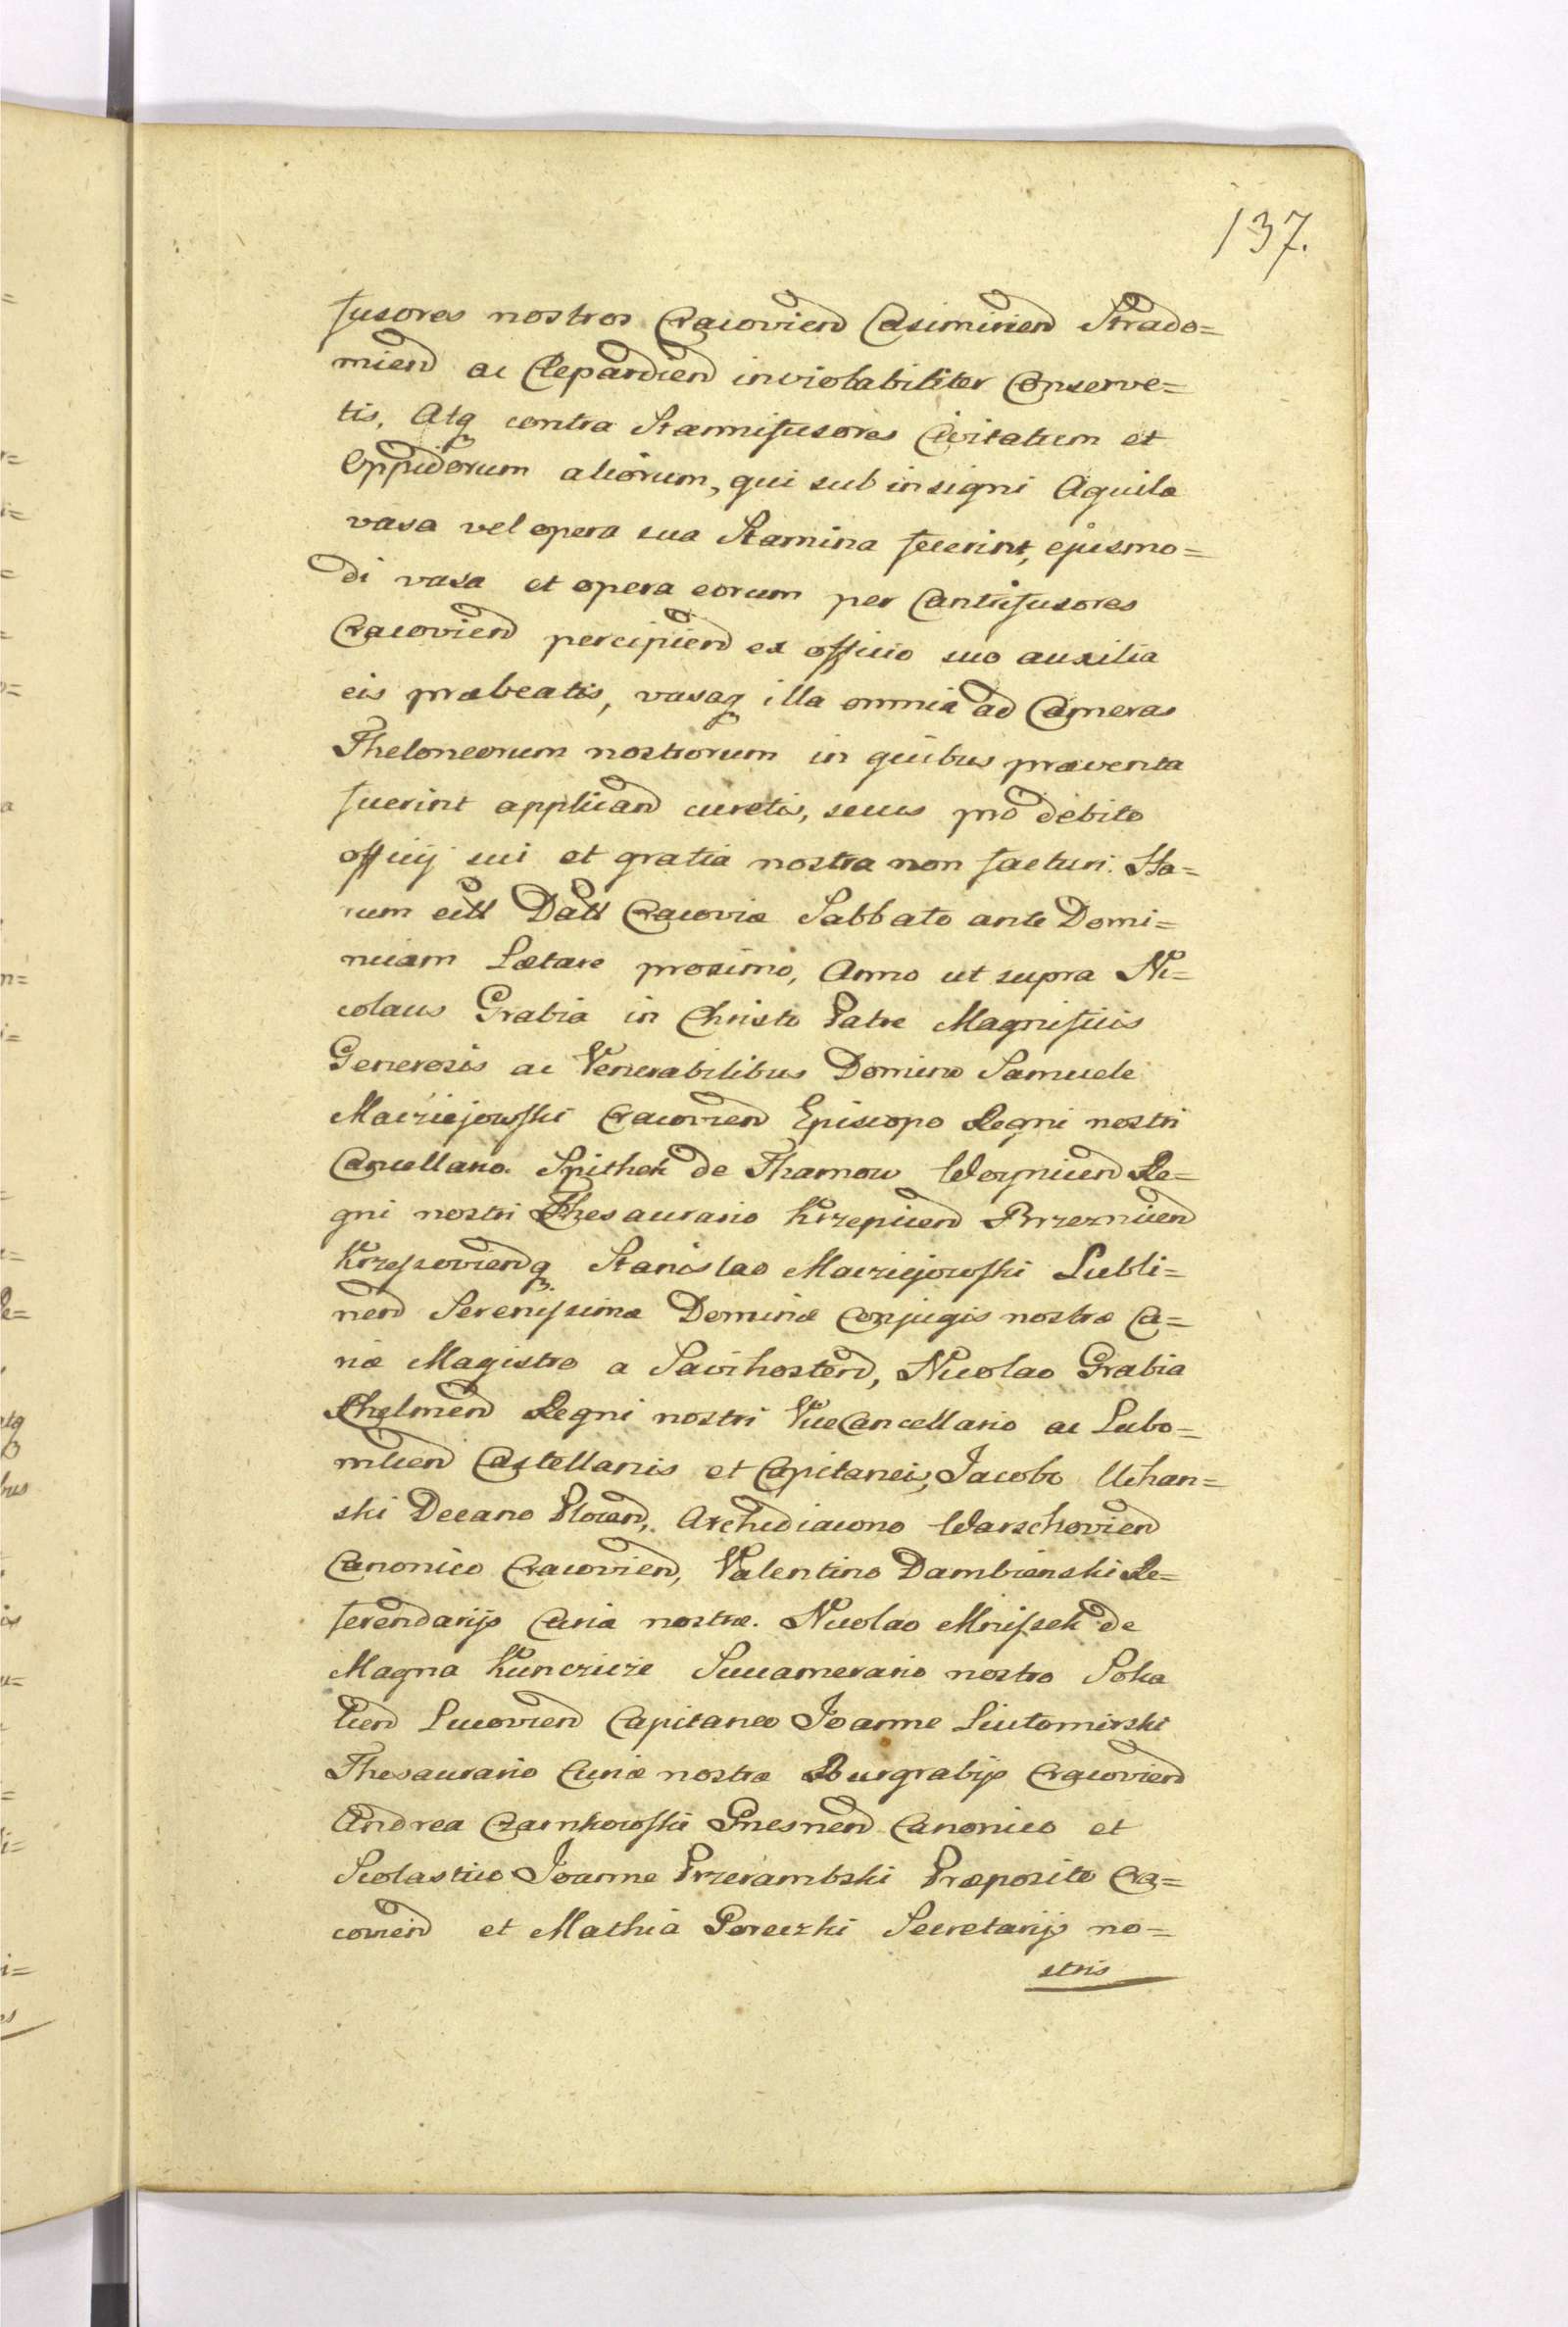 137.
fusores nostros Cracovien Casimirien Strado=
mien ac Clepardien inviolabiliter Conserve=
tis, Atq contra Stannifusores Civitatum et
Oppidorum aliorum, qui sub insigni Aquila
vasa vel opera sua Stamina fecerint, ejusmo=
di vasa et opera eorum per Cantrifusores
Cracovien percipien ex officio suo auxilia
eis præbeatis, vasaq illa omnia ad Cameras
Theloneorum nostrorum in quibus præventa
fuerint applicand curetis, secus pro debito
officij sui et gratia nostra non facturi. Ha=
rum Datt Cracoviæ Sabbato ante Domi=
nicam Lætare proximo, Anno ut supra Ni=
colaus Grabia in Christo Patre Magnificis
Generosis ac Venerabilibus Domino Samuele
Macziejowski Cracovien Episcopo Regni nostri
Cancellario. Spithek de Tharnow Woynicen Re=
gni nostri Thesaurario Krzepicen Brzeznicen
Krzeszovienq Stanislao Macziejowski Lubli=
nen Serenissimæ Dominæ Conjugis nostræ Cu=
riæ Magistro a Savihosten, Nicolao Grabia
Chelmen Regni nostri ViceCancellario ac Lubo=
mlien Castellanis et Capitaneis, Jacobo Uchan=
ski Decano Plocen, Archidiacono Warschovien
Canonico Cracovien, Valentino Dambienski Re=
ferendarijs Curiæ nostræ. Nicolao Mniszek de
Magna Kunczicze Succamerario nostro Soka
lien Lucovien Capitaneo Joanne Liutomirski
Thesaurario Curiæ nostræ Burgrabijs Cracovien
Andrea Czarnkowski Gnesnen Canonico et
Scolastico Joanne Przerambski Præposito Cra=
covien et Mathia Poreczki Secretarijs no=
stris